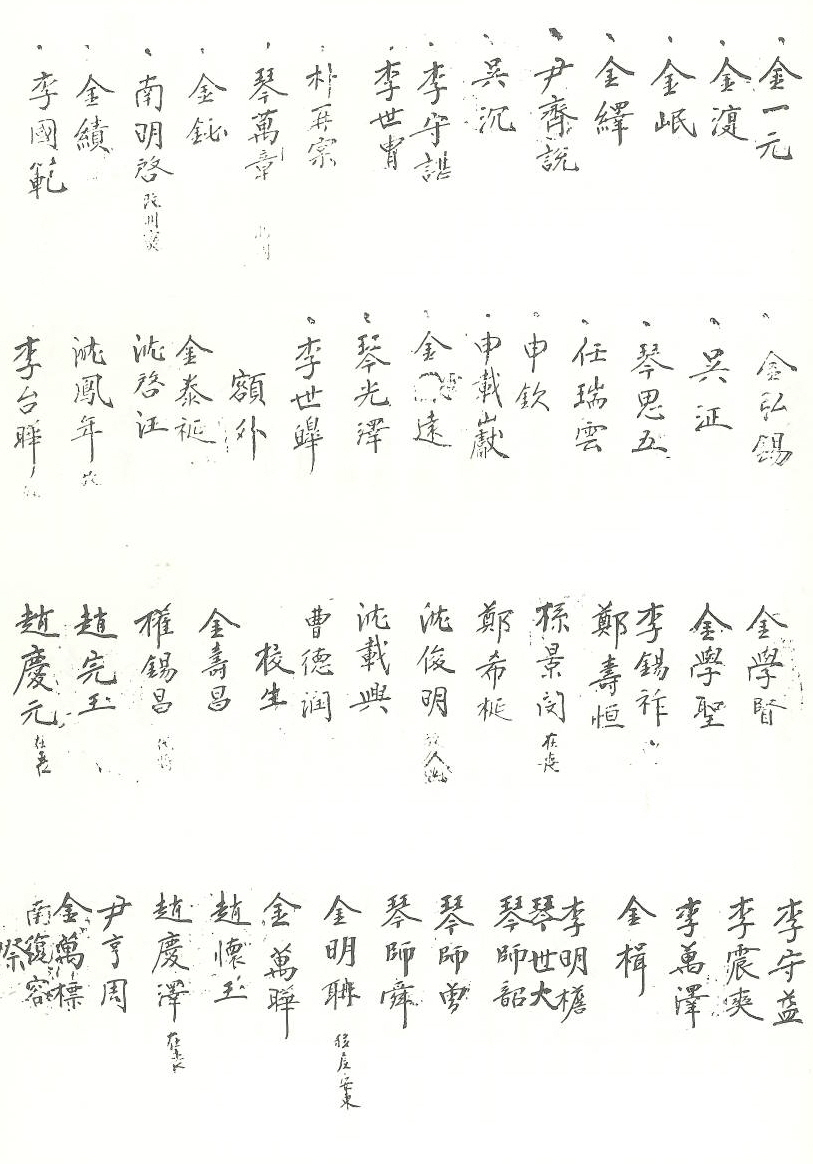 金一元
金㵢
金岷
金繹
尹齊說
吳沉
李守諶
李世胄
朴宗
琴萬章
金
南明啓
金績
李國範
金弘錫
吳証
琴思五
任瑞雲
申欽
申載巘
金遠
琴光澤
李世皥
額外
金泰
沈啓汪
沈鳳年
李台曄
金學賢
金學聖
李錫祚
鄭壽恒
孫景閔
鄭希梴
沈俊明
沈載興
曹德潤
校生
金壽昌
權錫昌
趙完玉
趙慶元
李守益
李震爽
李萬澤
金楫
李明櫓
琴世大
琴師韶
琴師曾
琴師舜
金明聃 移居安東
金萬曄
趙懷玉
趙慶澤
尹亨周
金萬標
南復容